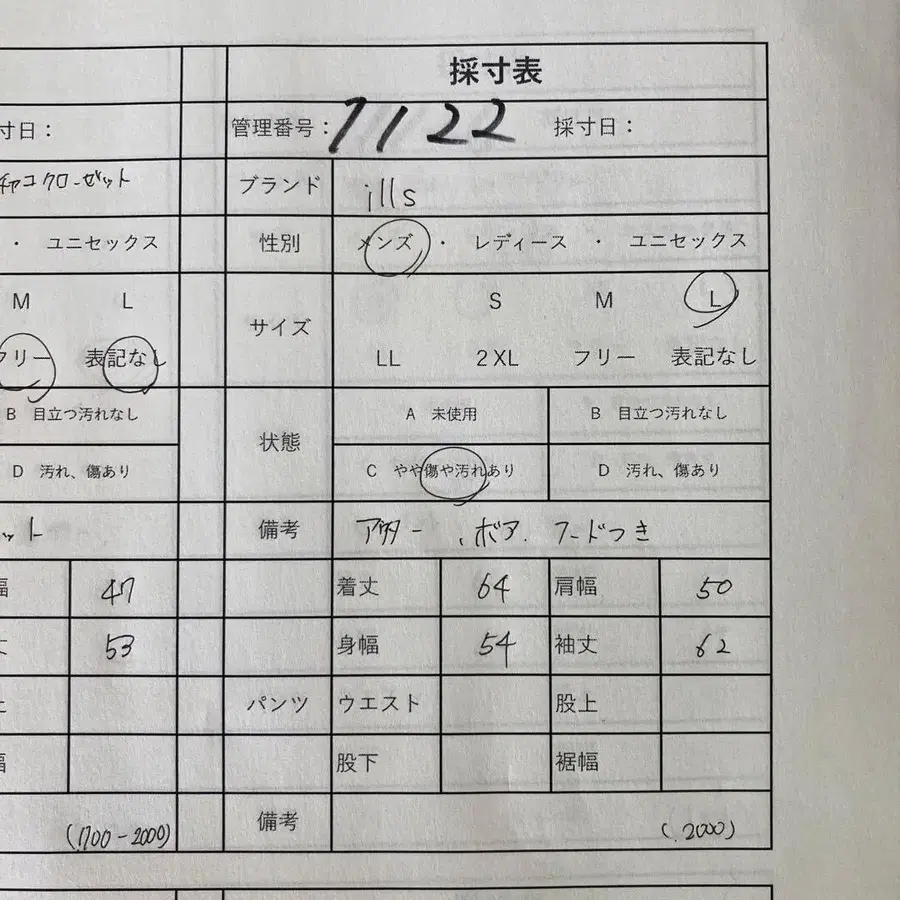 採寸表
寸日：
管理番号：1122 採寸日：
チャコクローゼット
ブランド ills
・ ユニセックス
性別 メンズ ・ レディース ・ ユニセックス
M L
サイズ S M L
フリー 表記なし
LL 2XL フリー 表記なし
B 目立つ汚れなし
状態 A 未使用 B 目立つ汚れなし
D 汚れ、傷あり
C やや傷や汚れあり D 汚れ、傷あり
ット
備考 アウター、ボア、フードつき
幅 47
着丈 64 肩幅 50
丈 53
身幅 54 袖丈 62
上
パンツ ウエスト 股上
幅
股下 裾幅
(1700-2000)
備考 (2000)